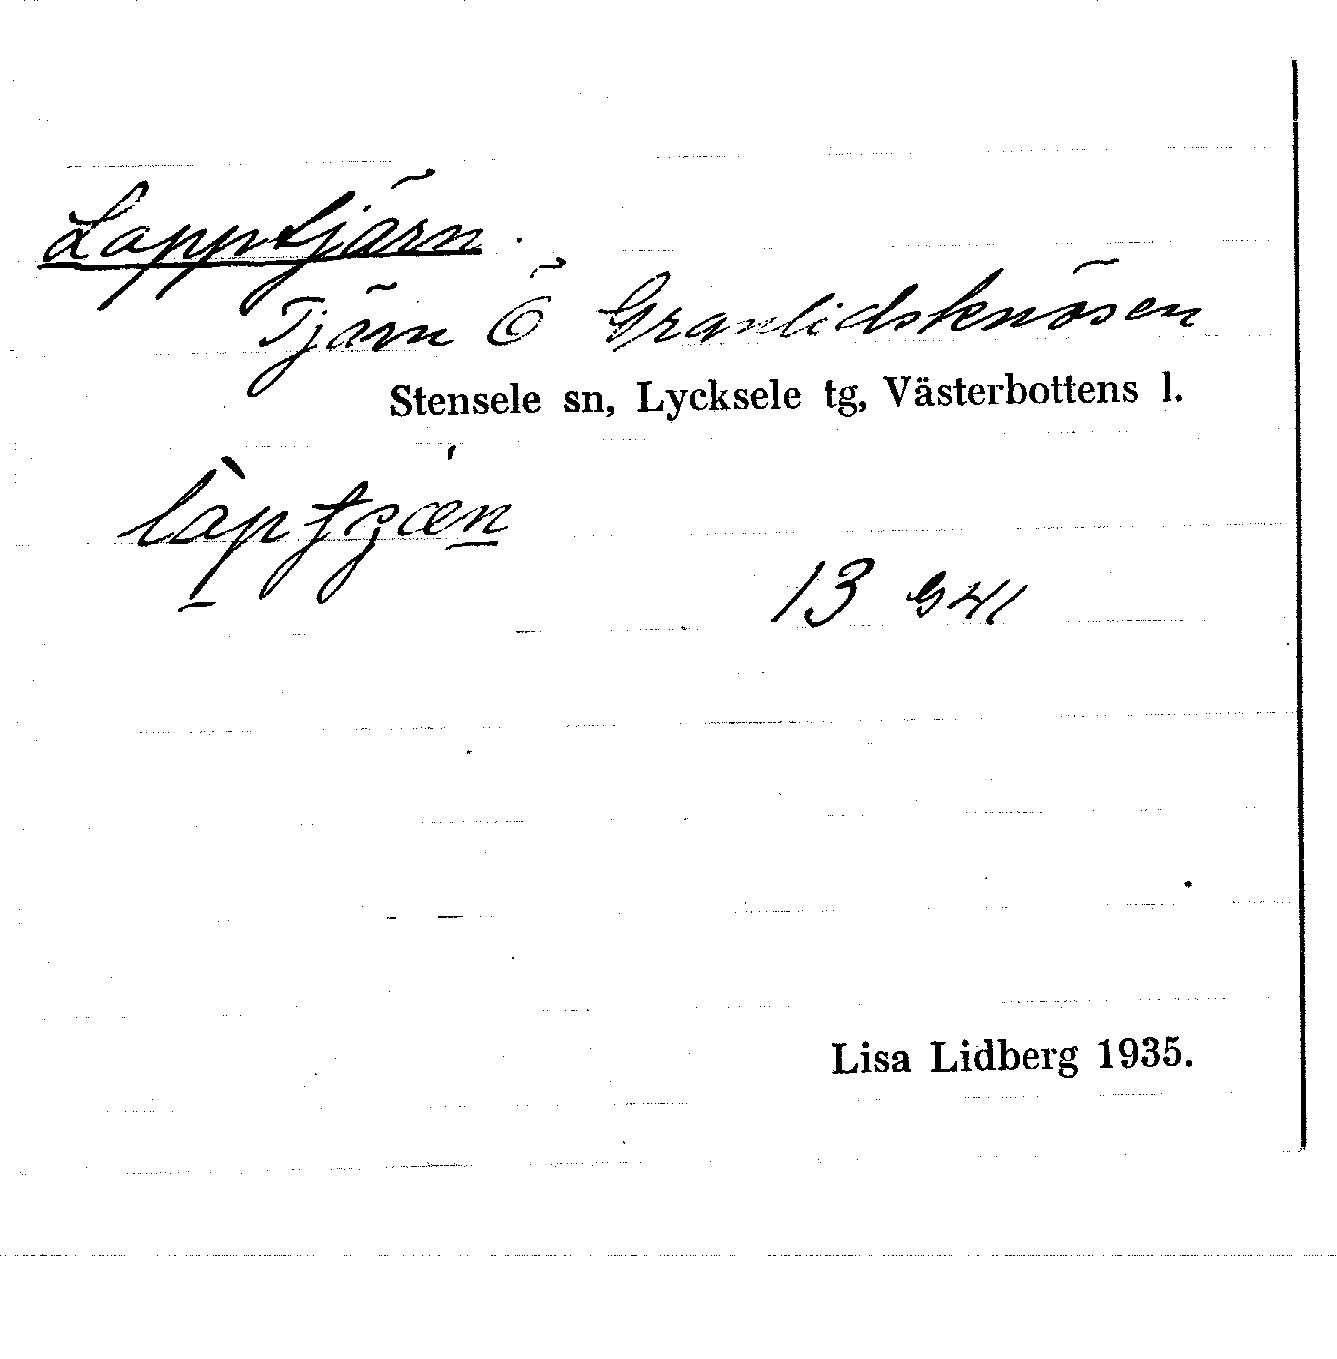 Lapptjärn.
Tjärn Ö Granlidsknösen
Stensele sn, Lycksele tg, Västerbottens l.
13
Lisa Lidberg 1935.